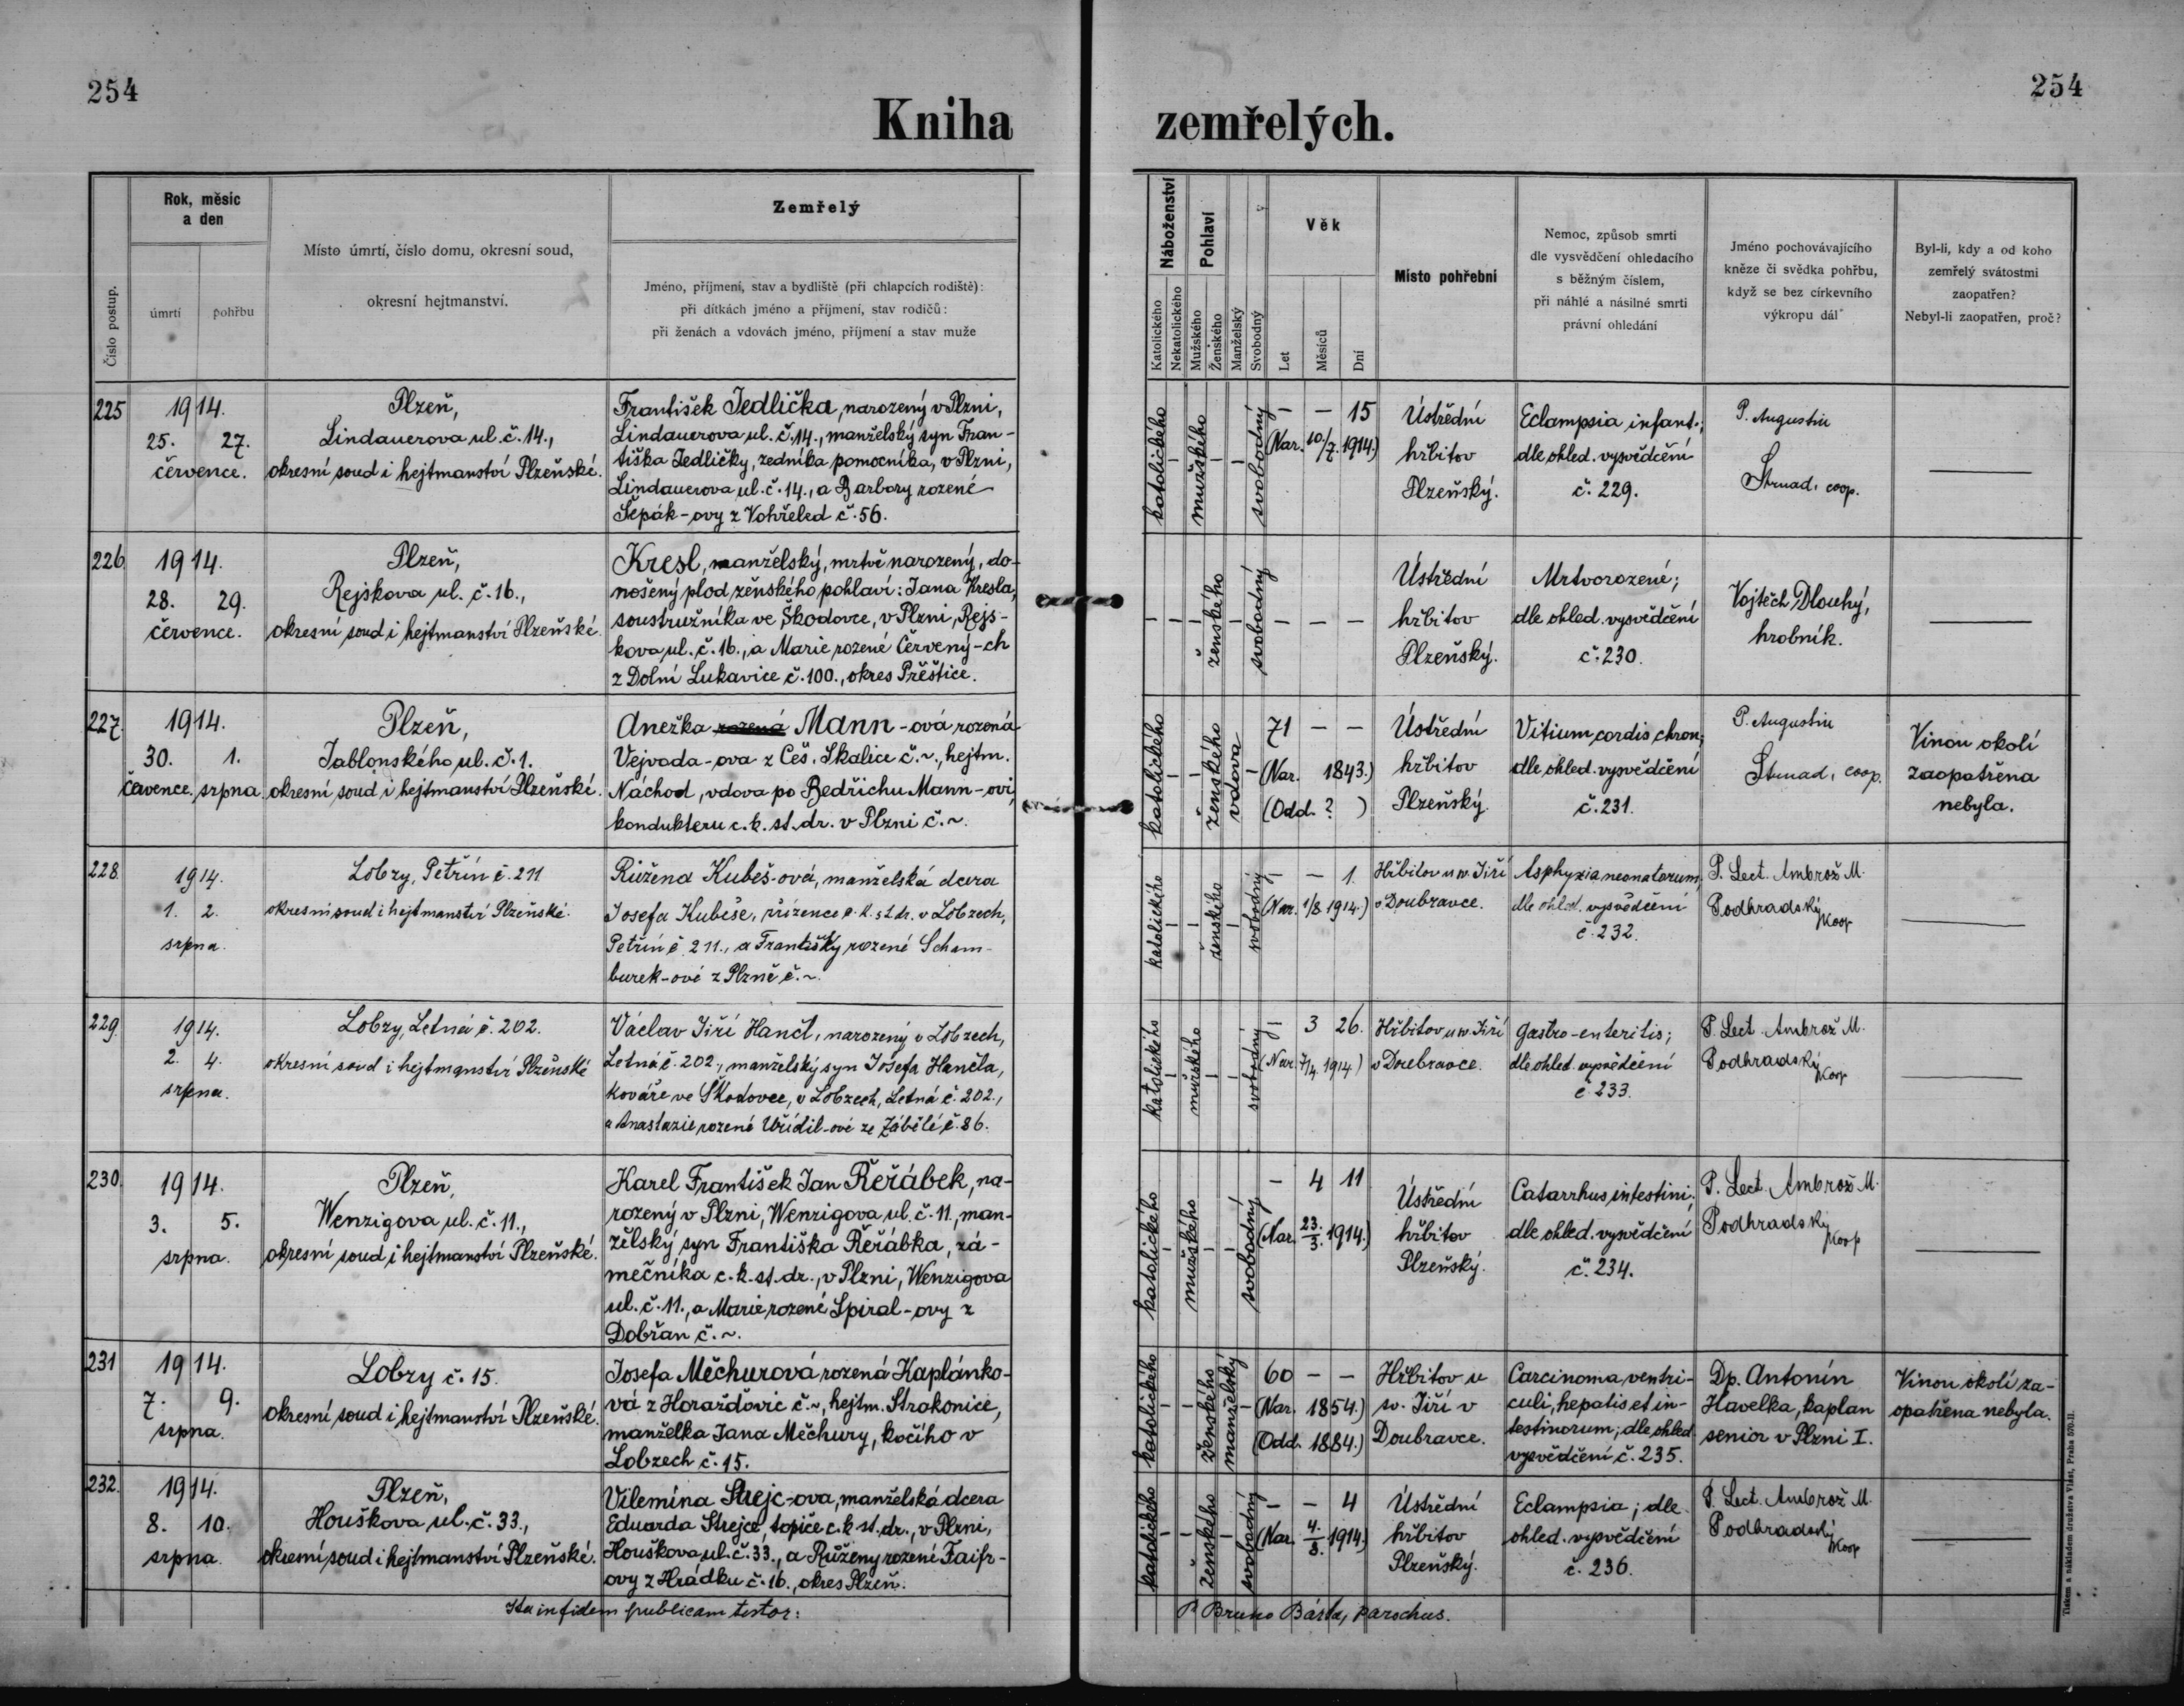 254
254
Kniha zemřelých.
Číslo postup.
Rok, měsíc
a den
úmrtí
pohřbu
Místo úmrtí, číslo domu, okresní soud,
okresní hejtmanství.
Zemřelý
Jméno, příjmení, stav a bydliště (při chlapcích rodiště):
při dítkách jméno a příjmení, stav rodičů:
při ženách a vdovách jméno, příjmení a stav muže
Náboženství
Katolického
Nekatolického
Pohlaví
Mužského
Ženského
Manželský
Svobodný
Věk
Let
Měsíců
Dní
Místo pohřební
Nemoc, způsob smrti
dle vysvědčení ohledacího
s běžným číslem,
při náhlé a násilné smrti
právní ohledání
Jméno pochovávajícího
kněze či svědka pohřbu,
když se bez církevního
výkropu dál
Byl-li, kdy a od koho
zemřelý svátostmi
zaopatřen?
Nebyl-li zaopatřen, proč?
225
1914.
25. 27.
července.
Plzeň,
Lindauerova ul. č. 14.,
okresní soud i hejtmanství Plzeňské.
František Jedlička, narozený v Plzni,
Lindauerova ul. č. 14., manželský syn Fran-
tiška Jedličky, zedníka pomocníka, v Plzni,
Lindauerova ul. č. 14., a Barbory rozené
Šepák-ovy z Vohřeled č. 56.
katolického
–
mužského
–
–
svobodný
– – 15
(Nar. 10/7. 1914.)
Ústřední
hřbitov
Plzeňský.
Eclampsia infant.;
dle ohled. vysvědčení
č. 229.
P. Augustin
Strnad, coop.
—
226.
1914.
28. 29.
července.
Plzeň,
Rejskova ul. č. 16.,
okresní soud i hejtmanství Plzeňské.
Kresl, manželský, mrtvě narozený, do-
nošený plod ženského pohlaví: Jana Kresla,
soustružníka ve Škodovce, v Plzni, Rejs-
kova ul. č. 16., a Marie rozené Červený-ch
z Dolní Lukavice č. 100., okres Přeštice.
– – –
ženského
–
svobodný
– – –
Ústřední
hřbitov
Plzeňský.
Mrtvorozené;
dle ohled. vysvědčení
č. 230.
Vojtěch Dlouhý,
hrobník.
—
227.
1914.
30. 1.
července. srpna.
Plzeň,
Jablonského ul. č. 1.
okresní soud i hejtmanství Plzeňské.
Anežka rozená Mann-ová rozená
Vejvoda-ova z Čes. Skalice č. ~, hejtm.
Náchod, vdova po Bedřichu Mann-ovi,
kondukteru c. k. st. dr. v Plzni č. ~.
katolického
– –
ženského
vdova
–
71 – –
(Nar. 1843.)
(Odd. ? )
Ústřední
hřbitov
Plzeňský.
Vitium cordis chron.;
dle ohled. vysvědčení
č. 231.
P. Augustin
Strnad, coop.
Vinou okolí
zaopatřena
nebyla.
228.
1914.
1. 2.
srpna.
Lobzy, Petřín č. 211
okresní soud i hejtmanství Plzeňské.
Růžena Kubeš-ová, manželská dcera
Josefa Kubeše, zřízence c. k. st. dr. v Lobzech,
Petřín č. 211., a Františky rozené Scham-
burek-ové z Plzně č. ~.
katolického
– –
ženského
–
svobodný
– – 1.
(Nar. 1/8 1914.)
Hřbitov u sv. Jiří
v Doubravce.
Asphyxia neonatorum;
dle ohled. vysvědčení
č. 232.
P. Lect. Ambrož M.
Podhradský
koop
—
229.
1914.
2. 4.
srpna.
Lobzy, Letná č. 202.
okresní soud i hejtmanství Plzeňské
Václav Jiří Hančl, narozený v Lobzech,
Letná č. 202., manželský syn Josefa Hančla,
kováře ve Škodovce, v Lobzech, Letná č. 202.,
a Anastazie rozené Uřídil-ové ze Zábělé č. 86.
katolického
–
mužského
–
–
svobodný
– 3 26.
(Nar. 7/4. 1914.)
Hřbitov u sv. Jiří
v Doubravce.
Gastro-enteritis;
dle ohled. vysvědčení
č. 233.
P. Lect. Ambrož M.
Podhradský
koop
—
230.
1914.
3. 5.
srpna.
Plzeň,
Wenzigova ul. č. 11.,
okresní soud i hejtmanství Plzeňské.
Karel František Jan Řeřábek, na-
rozený v Plzni, Wenzigova ul. č. 11., man-
želský syn Františka Řeřábka, zá-
mečníka c. k. st. dr., v Plzni, Wenzigova
ul. č. 11., a Marie rozené Spiral-ovy z
Dobřan č. ~.
katolického
–
mužského
–
–
svobodný
– 4 11
(Nar. 23./3. 1914.)
Ústřední
hřbitov
Plzeňský.
Catarrhus intestini;
dle ohled. vysvědčení
č. 234.
P. Lect. Ambrož M.
Podhradský
koop
—
231
1914.
7. 9.
srpna.
Lobzy č. 15.
okresní soud i hejtmanství Plzeňské.
Josefa Měchurová rozená Kaplánko-
vá z Horažďovic č. ~, hejtm. Strakonice,
manželka Jana Měchury, kočího v
Lobzech č. 15.
katolického
– –
ženského
manželský
–
60 – –
(Nar. 1854.)
(Odd. 1884.)
Hřbitov u
sv. Jiří v
Doubravce.
Carcinoma ventri-
culi, hepatis et in-
testinorum; dle ohled.
vysvědčení č. 235.
Dp. Antonín
Havelka, kaplan
senior v Plzni I.
Vinou okolí za-
opatřena nebyla.
232.
1914.
8. 10.
srpna.
Plzeň,
Houškova ul. č. 33.,
okresní soud i hejtmanství Plzeňské.
Vilemína Strejc-ova, manželská dcera
Eduarda Strejce, topiče c. k. st. dr., v Plzni,
Houškova ul. č. 33., a Růženy rozené Faifr-
ovy z Hrádku č. 16., okres Plzeň.
katolického
– –
ženského
–
svobodný
– – 4
(Nar. 4./8. 1914.)
Ústřední
hřbitov
Plzeňský.
Eclampsia; dle
ohled. vysvědčení
č. 236.
P. Lect. Ambrož M.
Podhradský
koop
—
Ita in fidem publicam testor:
P. Bruno Bárta, parochus.
Tiskem a nákladem družstva Vlast, Praha 570-II.